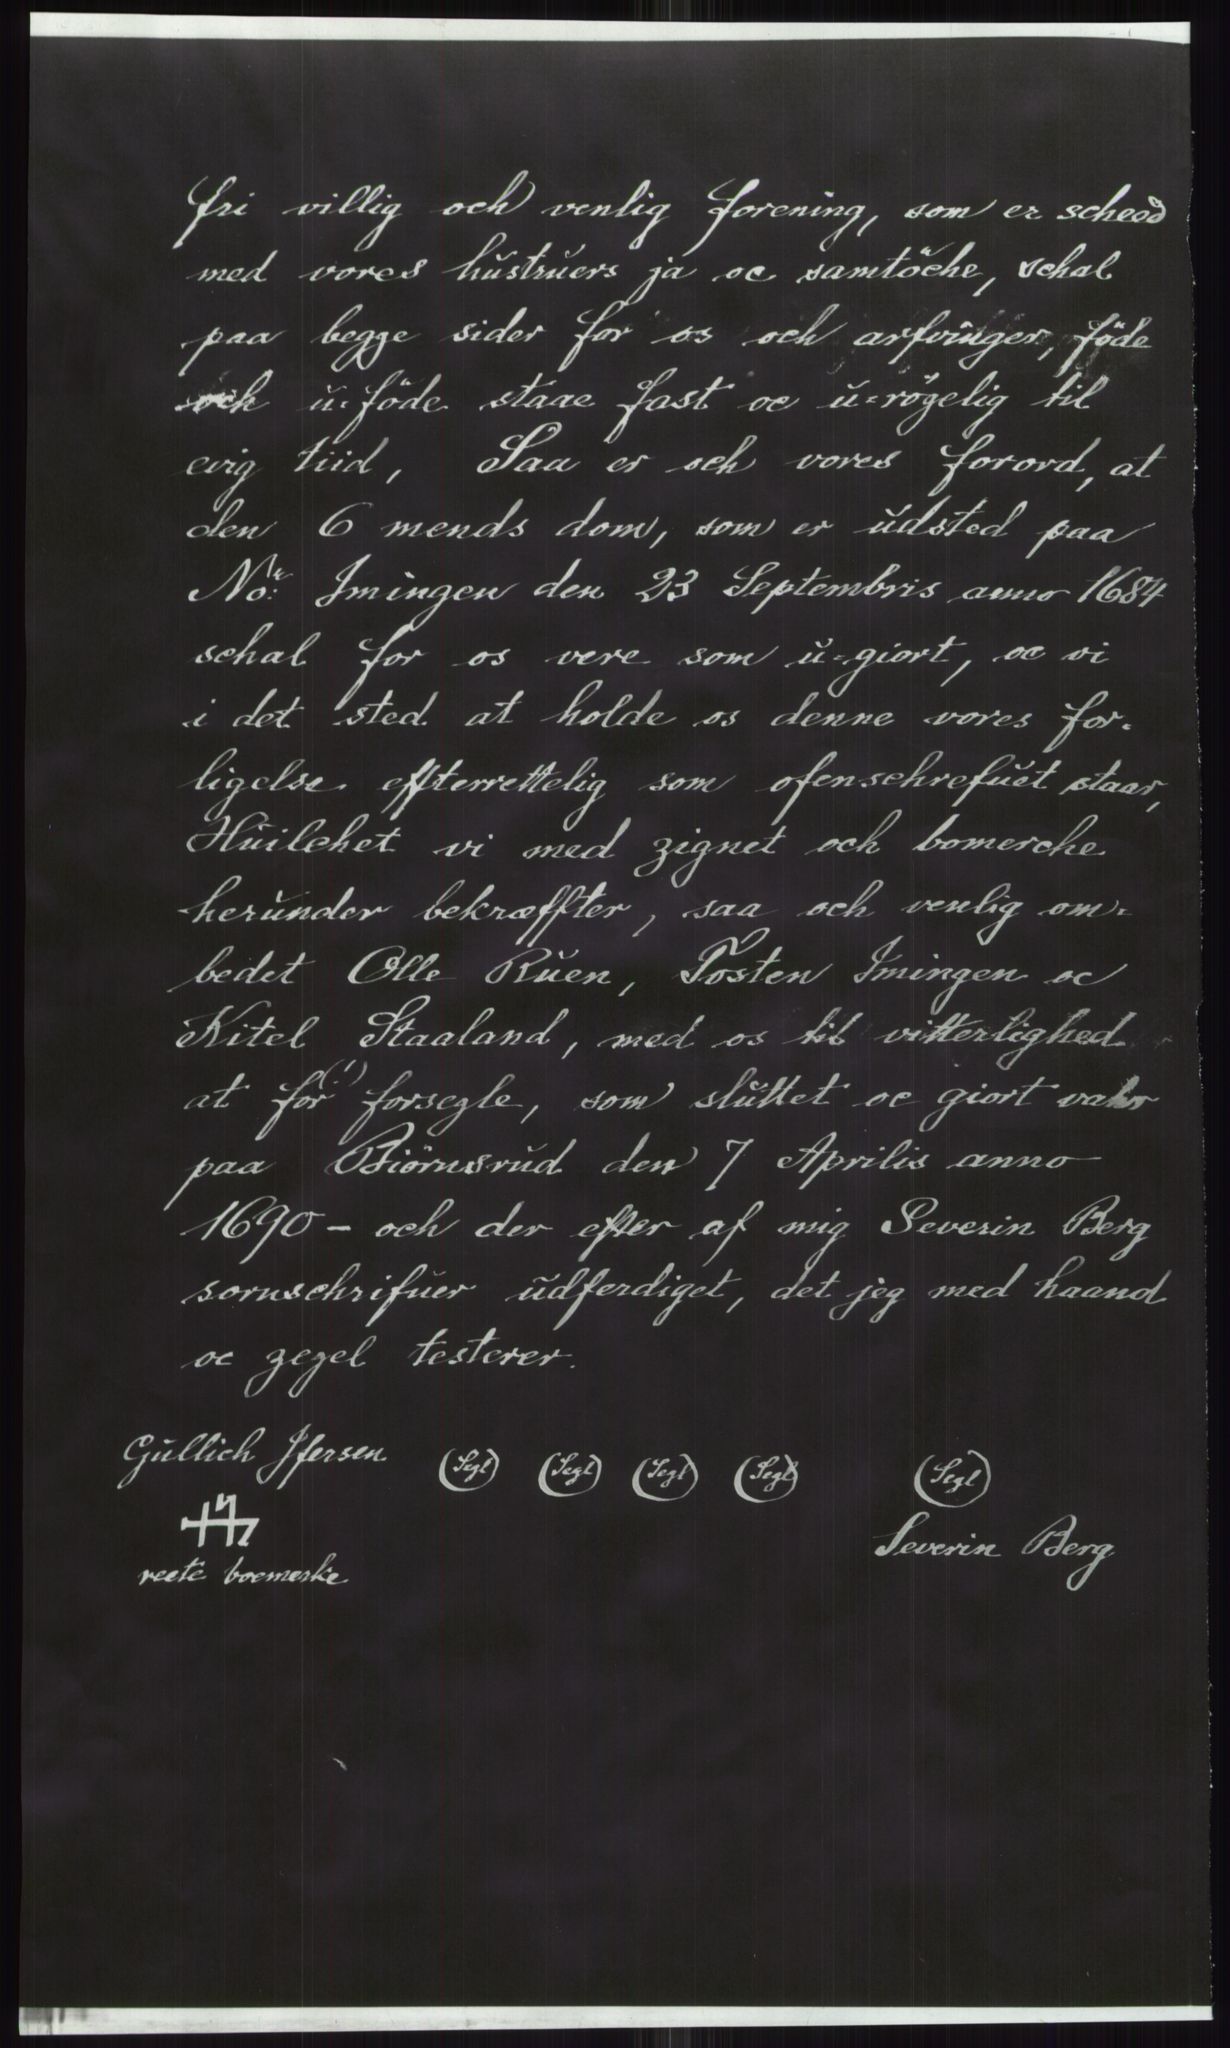 fri villig och venlig forening, som er scheed
med vores hustruers ja oc samtöche, schal
paa begge sider for os och arfvinger, föde
och u=föde staae fast oc u=rögelig til
evig tiid, Saa er och vores forord, at
den 6 mends dom, som er udsted paa
No:r Imingen den 23 Septembris anno 1684
schal for os vere som u=giort, oc vi
i det sted at holde os denne vores for=
ligelse effterrettelig som ofenschrefuet staar,
Huilchet vi med zignet och bomerche
herunder bekræffter, saa och venlig om=
bedet Olle Ruen, Tosten Imingen oc
Kitel Staaland, med os til vitterlighed
at for (!) forsegle, som sluttet oc giort vahr
paa Biörnsrud den 7 Aprilis anno
1690 – och der efter af mig Severin Berg
sornschrifuer udferdiget, det jeg med haand
oc zegel testerer.
Gullich Ifersen (Segl) (Segl) (Segl) (Segl) (Segl)
Severin Berg
reete boemerke